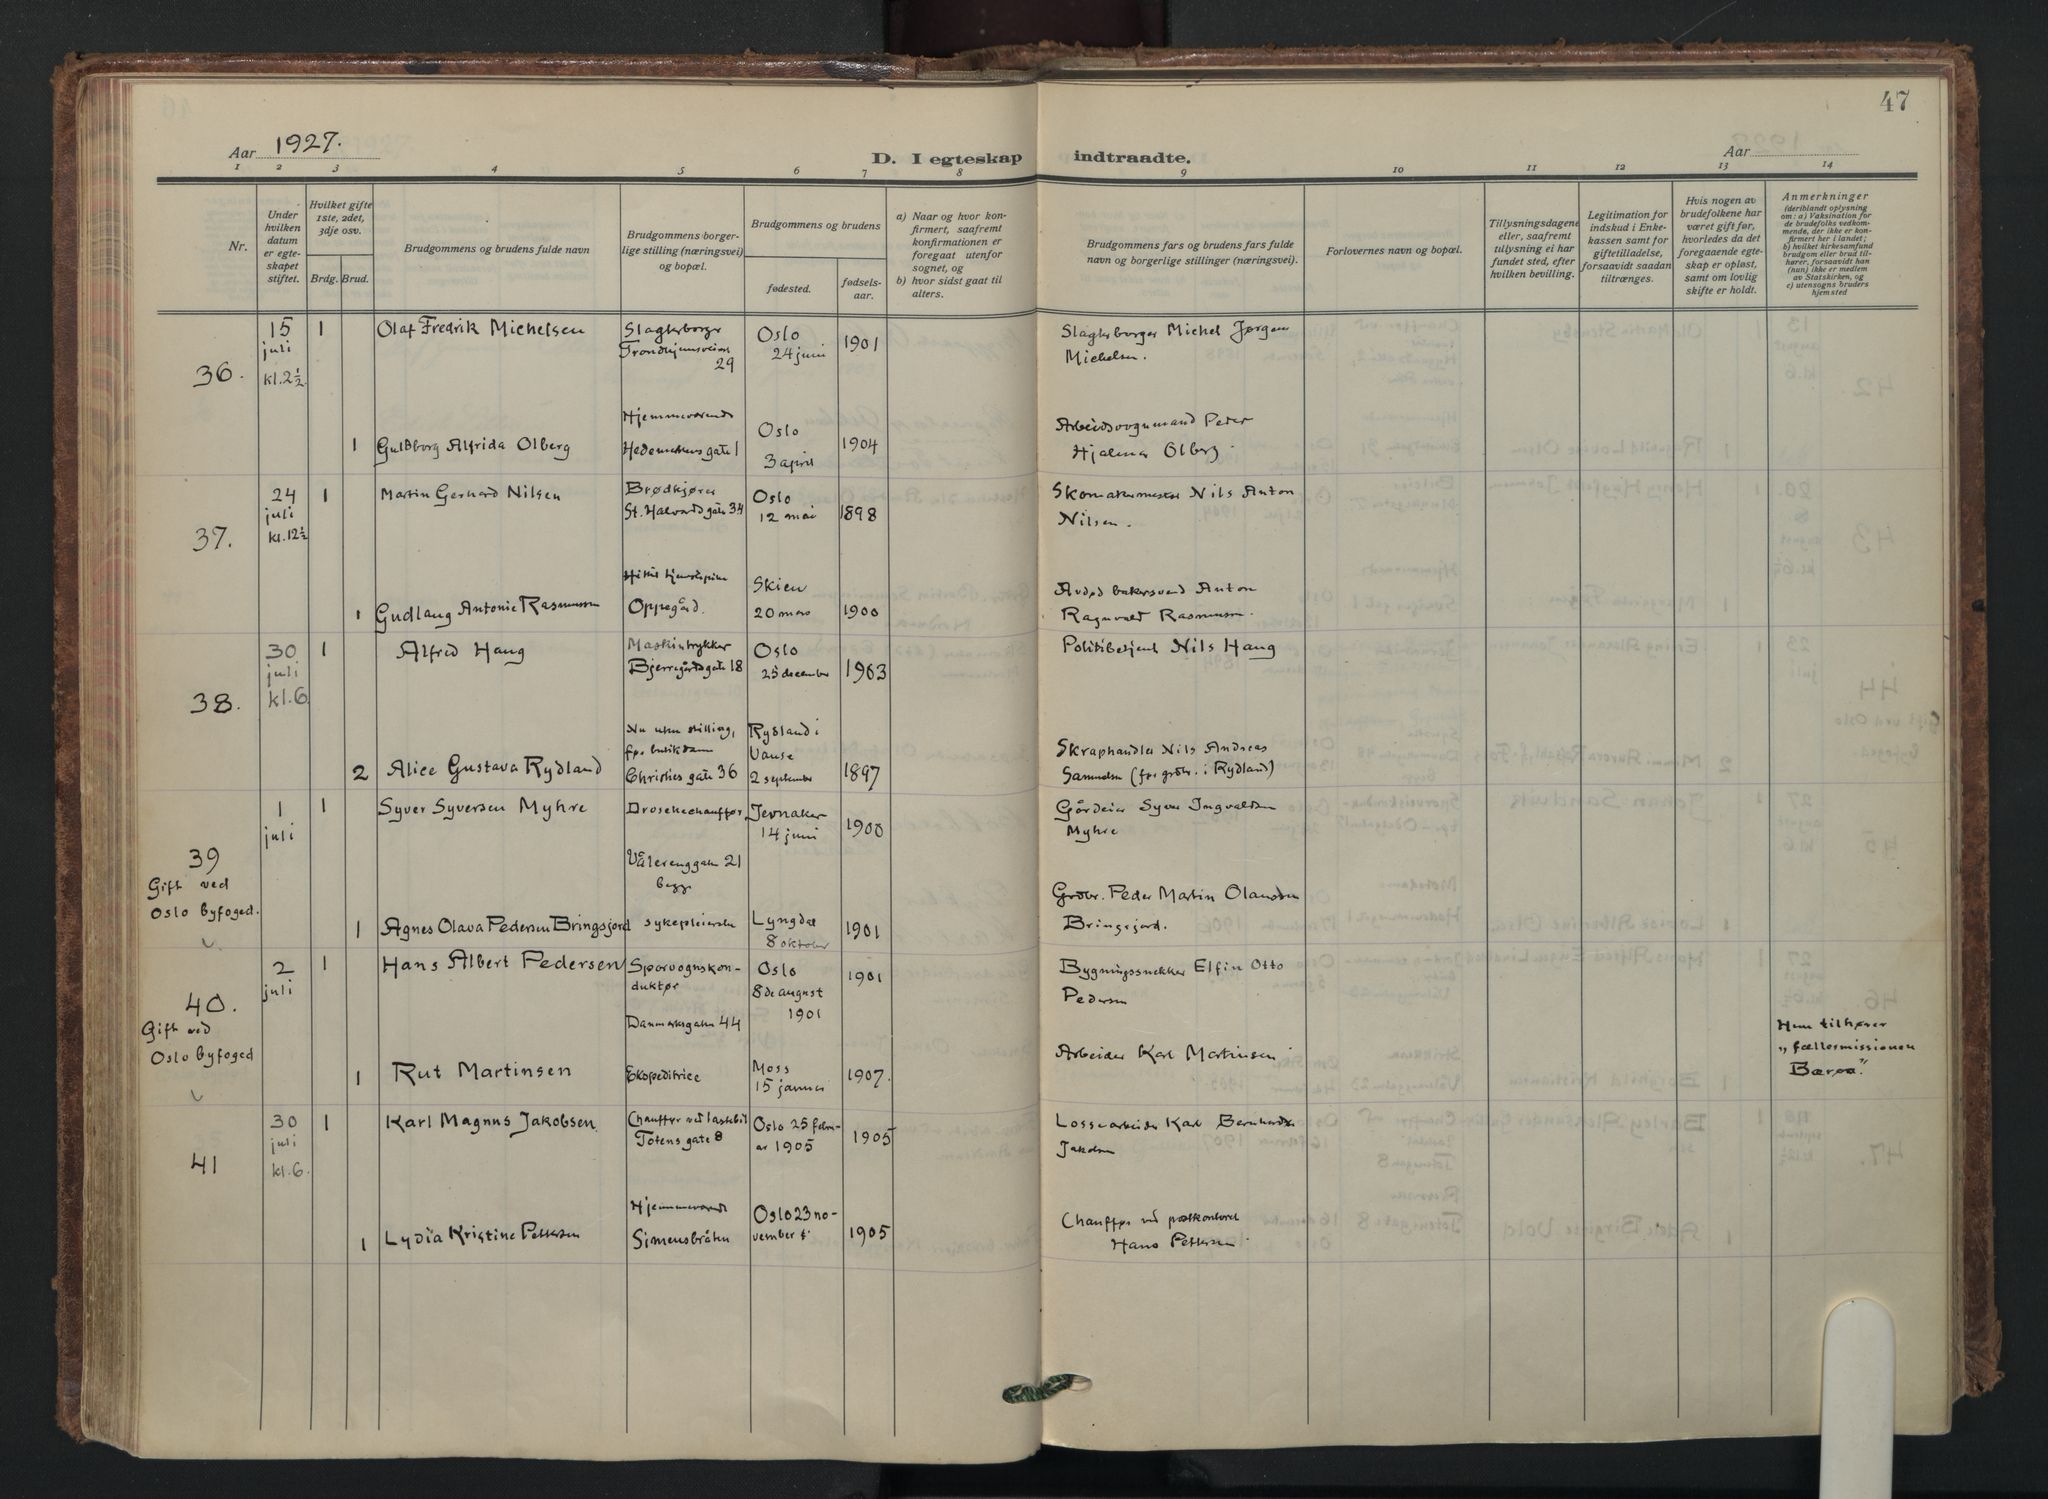 47
Aar 1927.
D. I egteskap indtraadte.
Aar
1 2 3 4 5 6 7 8 9 10 11 12 13 14
Nr.
Under hvilken datum er egte-skapet stiftet.
Hvilket gifte 1ste, 2det, 3dje osv.
Brdg. Brud.
Brudgommens og brudens fulde navn
Brudgommens borger-lige stilling (næringsvei) og bopæl.
Brudgommens og brudens
fødested.
fødsels-aar.
a) Naar og hvor kon-firmert, saafremt konfirmationen er foregaat utenfor sognet, og
b) hvor sidst gaat til alters.
Brudgommens fars og brudens fars fulde navn og borgerlige stillinger (næringsvei).
Forlovernes navn og bopæl.
Tillysningsdagene eller, saafremt tillysning ei har fundet sted, efter hvilken bevilling.
Legitimation for indskud i Enke-kassen samt for giftetilladelse, forsaavidt saadan tiltrænges.
Hvis nogen av brudefolkene har været gift før, hvorledes da det foregaaende egte-skap er opløst, samt om lovlig skifte er holdt.
Anmerkninger
(deriblandt oplysning om: a) Vaksination for de brudefolks vedkom-mende, der ikke er kon-firmert her i landet; b) hvilket kirkesamfund brudgom eller brud til-hører, forsaavidt han (hun) ikke er medlem av Statskirken, og c) utensogns bruders hjemsted
36.
15 juli kl. 2½
1
Olaf Fredrik Michelsen
Slagterborger Trondhjemsveien 29
Oslo 24 juni
1901
Slagterborger Michel Jørgen Michelsen.
1
Guldborg Alfrida Olberg
Hjemmeværende Hedemarkens gate 1
Oslo 3 april
1904
Arbeidsvognmand Peder Hjalmar Olberg.
37.
24 juli kl. 12½
1
Martin Gerhard Nilsen
Brødkjører St. Halvards gate 34
Oslo 12 mai
1898
Skomakermester Nils Anton Nilsen.
1
Gudlaug Antonie Rasmussen
Oppegård.
Skien 20 mars
1900
Avdød bakersvend Anton Ragnvald Rasmussen.
38.
30 juli kl. 6
1
Alfred Haug
Maskintrykker Bjerregårdsgate 18
Oslo 25 december
1903
Politibetjent Nils Haug
2
Alice Gustava Rydland
Nu uten stilling, før butikdame Christies gate 36
Rydland i Vanse 2 september
1897
Skraphandler Nils Andreas Samuelsen (før grdbr. i Rydland)
39
Gift ved Oslo byfoged.
1 juli
1
Syver Syversen Myhre
Droschechauffør, Vålerenggaten 21 begge
Jevnaker 14 juni
1900
Gårdeier Syver Ingvaldsen Myhre
1
Agnes Olava Pedersen Bringsjord
sykepleierske
Lyngdal 8 oktober
1901
Grdbr. Peder Martin Olaussen Bringsjord.
40.
Gift ved Oslo byfoged
2 juli
1
Hans Albert Pedersen
Sporvognskon-duktør Danmarksgaten 44
Oslo 8de august 1901
1901
Bygningssnekker Elfin Otto Pedersen
1
Rut Martinsen
Ekspeditrice
Moss 15 januar
1907.
Arbeider Karl Martinsen
Hun tilhører „fællesmissionen Bærøa"
41
30 juli kl. 6.
1
Karl Magnus Jakobsen.
Chauffør ved lastebil Totens gate 8
Oslo 25 febru-ar 1905
1905
Lossearbeider Karl Bernhard Jakobsen
1
Lydia Kristine Pettersen
Hjemmeværende Simensbråten
Oslo 23 no-vember
1905
Chauffør ved postkontoret Hans Pettersen